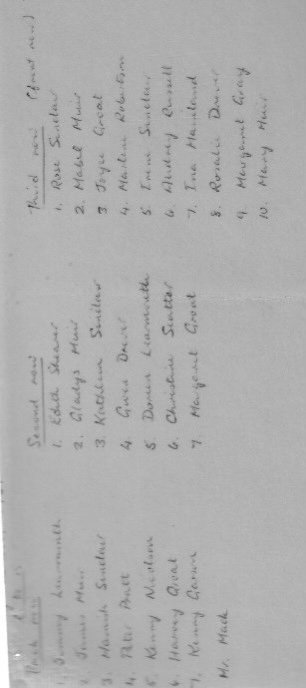 Back row
1. Jimmy Learmonth
2. James Muir
3. Hamish Sinclair
4. Peter Pratt
5. Kenny Nicolson
6. Harvey Groat
7. Kenny Garson
Mr. Mack
Second row
1. Edith Shearer
2. Gladys Muir
3. Kathleen Sinclair
4. Gwen Drever
5. Doreen Learmonth
6. Christine Scatter
7. Margaret Groat
Third row (front row)
1. Rose Sinclair
2. Mabel Muir
3. Joyce Groat
4. Marlene Robertson
5. Irene Sinclair
6. Audrey Russell
7. Ina Mainland
8. Rosalie Drever
9. Margaret Gray
10. Mary Muir